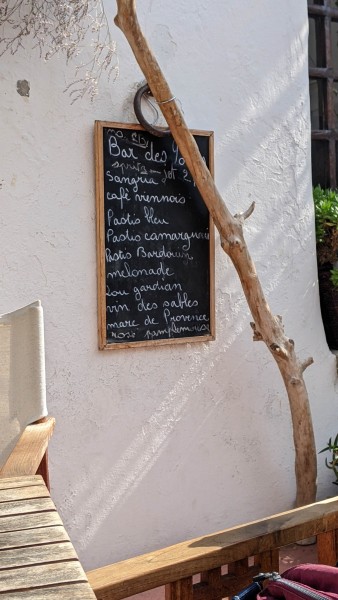 Bar des
spritz jet 2
sangria
café viennois
Pastis bleu
Pastis camarguais
Pastis Bardouin
melonade
Lou gardian
vin des sables
marc de Provence
rosé pamplemousse